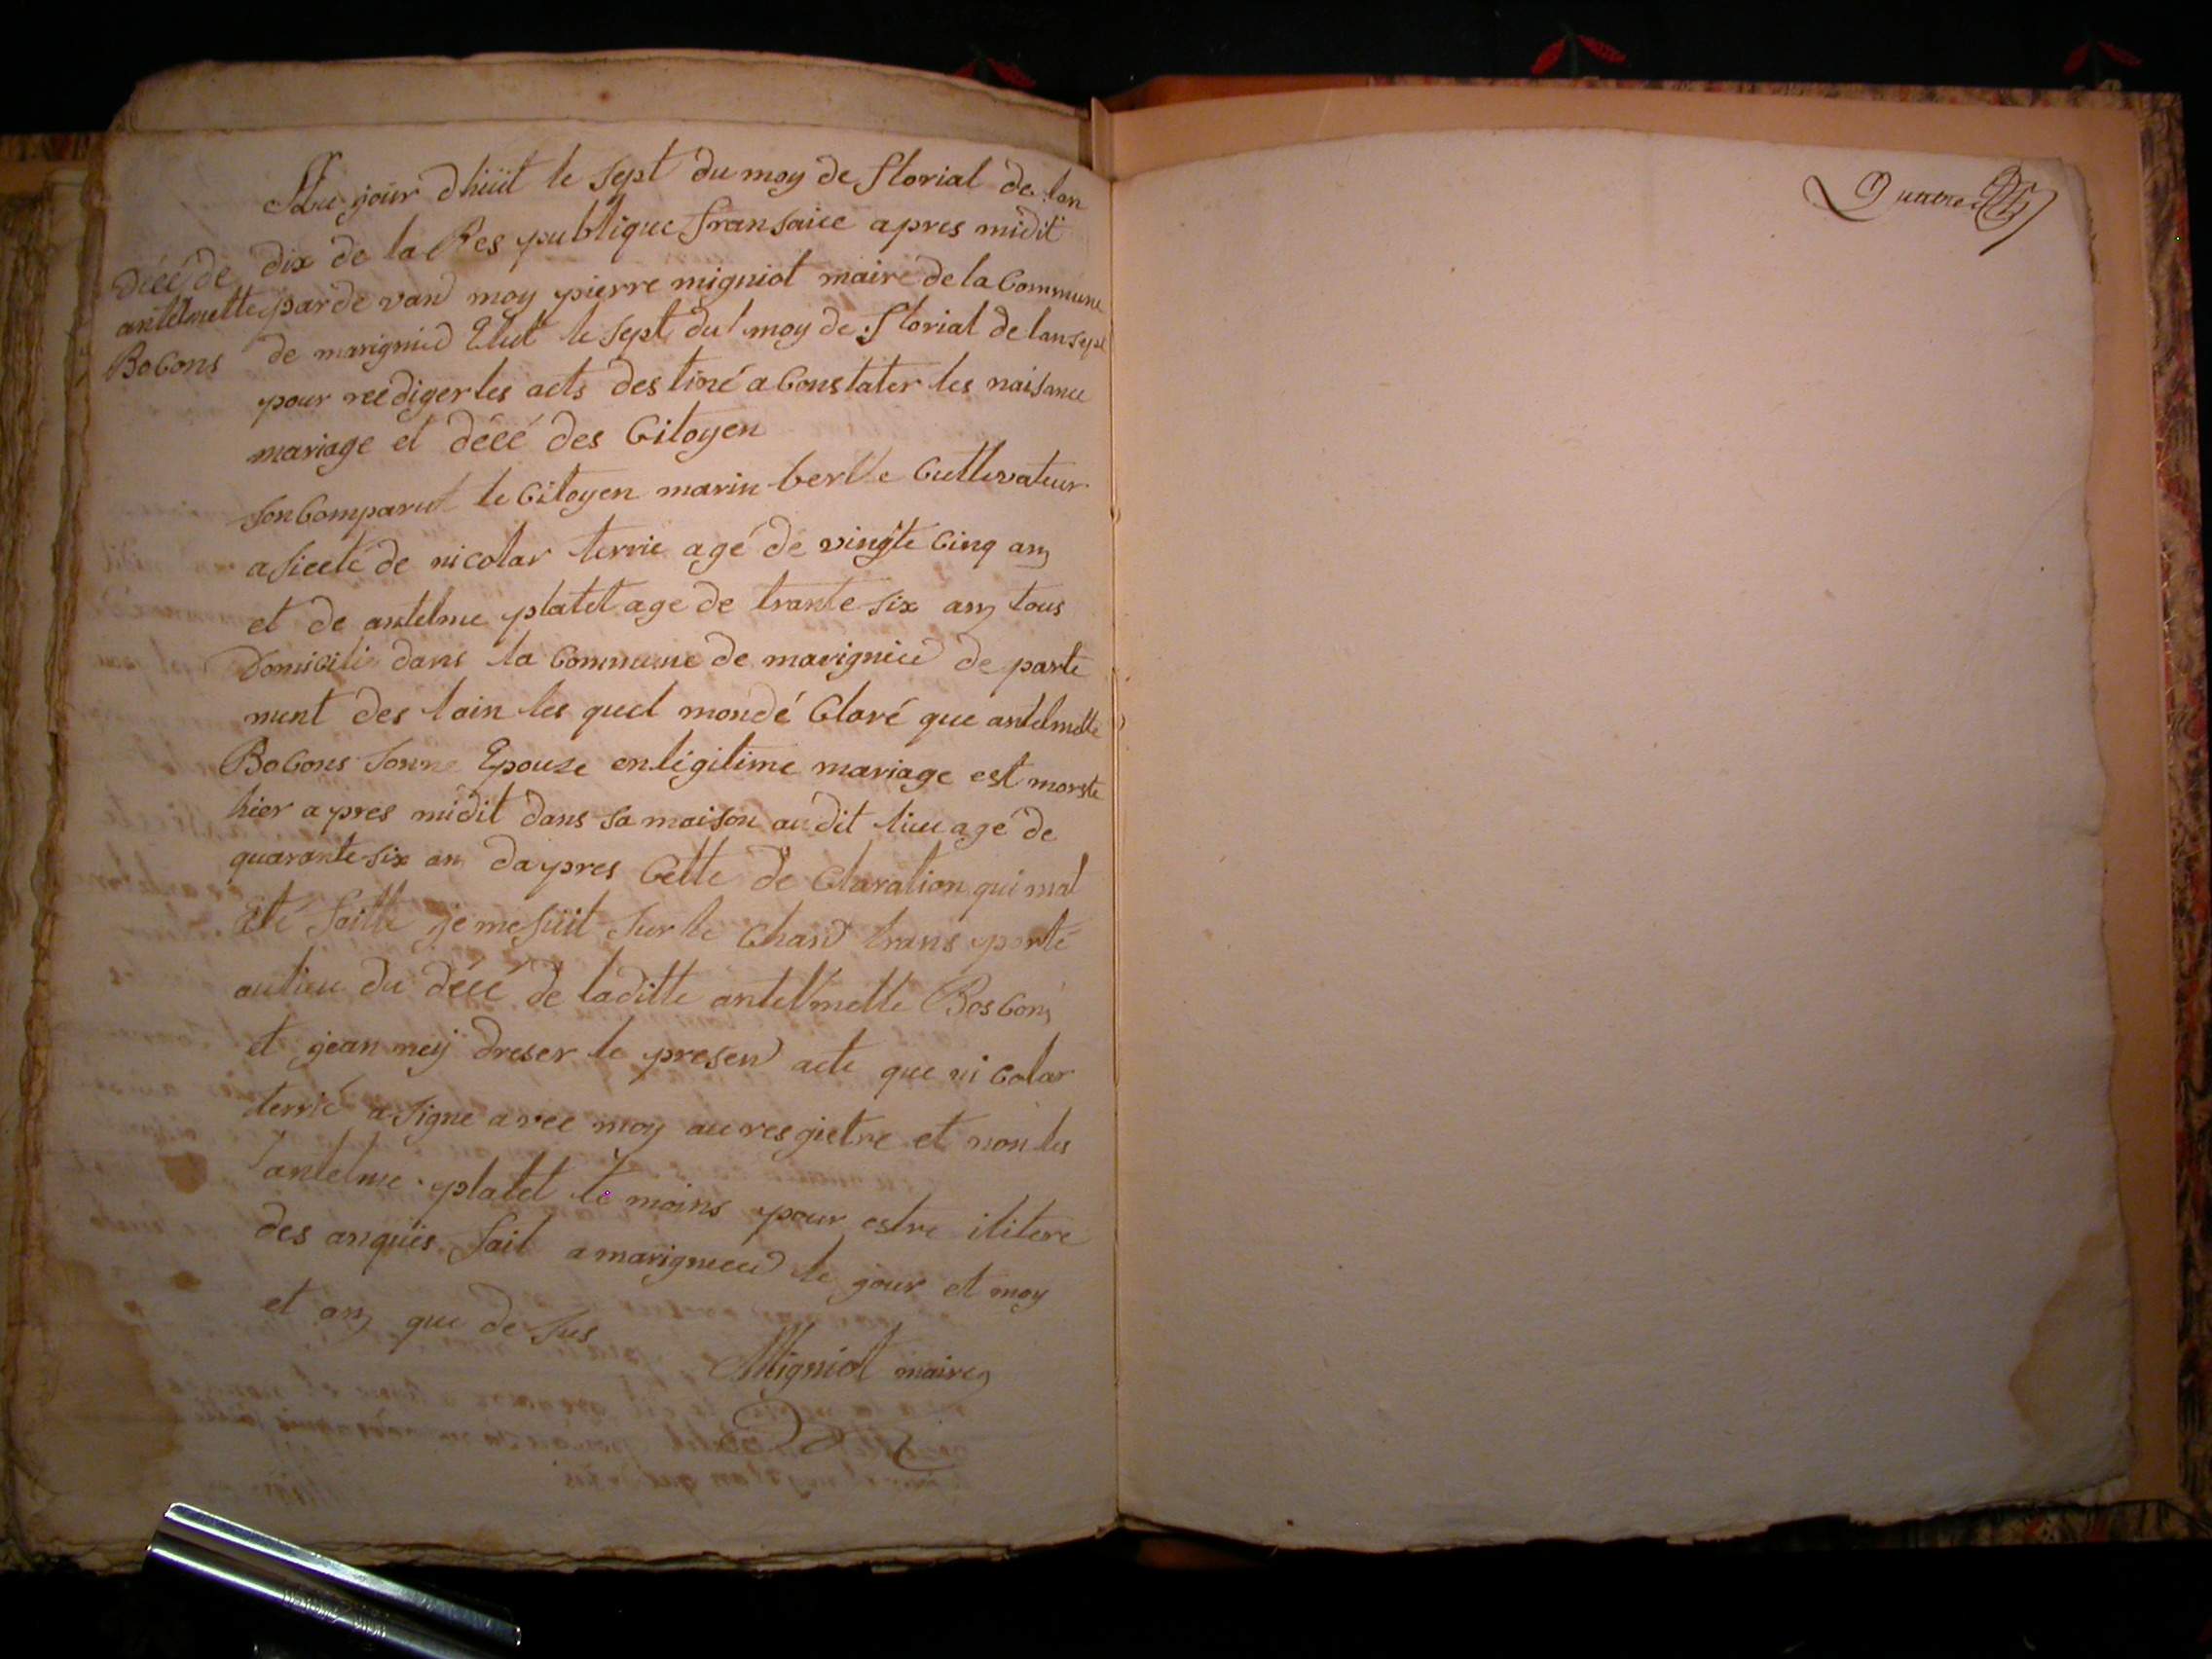 Au jour dhüit le sept du moy de florial de lan
dix de la Res publique fransaice apres midit
par de vand moy pierre migniot maire de la Commune
de marignied Elut le sept du moy de florial de lan sept
pour reediger les acts des tiné a Constater les naisance
mariage et déeé des Citoyen
son Comparut le Citoyen marin berlle Cultivateur
asieeté de nicolar terrie agé de vingte Cinq ans
et de antelme platet age de trante six ans tous
Domicilie dans la Commune de marignieu de parte
ment des lain les quel mondé Claré que antelmette
BoCons sonne Epouze en légitime mariage est morste
hier apres midit dans sa maison au dit lieu agé de
quarante six an dapres Cette de Claration qui mat
Eté faitte je me suit sur le Chand trans porté
au lieu du déeé de laditte antelmette BosCons
et jean mey dreser le presend acte que ni Colar
terrié a signe avec moy au resgistre et non les
antelme platet te moins pour estre ilitere
des anquïs fait a marignieu le jour et moy
et ans que de sus
Migniot maire
déeé de
antelmette
BoCons